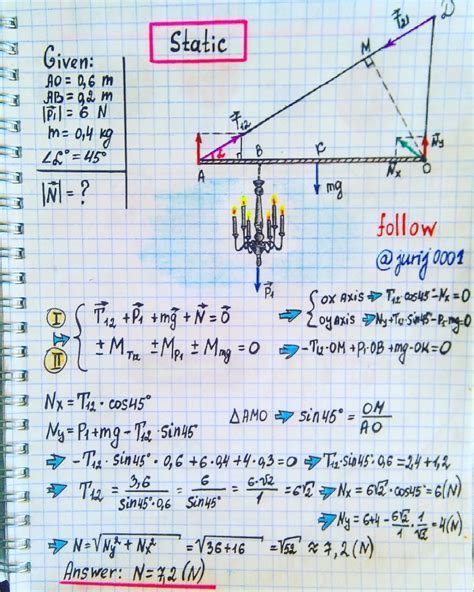 Static
Given:
AO = 0,6 m
AB = 0,2 m
|P⃗₁| = 6 N
m = 0,4 kg
∠α° = 45°
|N⃗| = ?
T⃗₂₁
D
M
T⃗₁₂
α
A
B
K
O
Nₓ
N⃗y
mg
P⃗₁
follow
@jurij0001
I
II
T⃗₁₂ + P⃗₁ + mg⃗ + N⃗ = 0⃗
± M_T₁₂ ± M_P₁ ± M_mg = 0
OX Axis ⇒ T₁₂·cos45° - Nₓ = 0
OY Axis ⇒ Ny + T₁₂·sin45° - P₁ - mg = 0
⇒ -T₁₂·OM + P₁·OB + mg·OK = 0
Nₓ = T₁₂·cos45°
Ny = P₁ + mg - T₁₂·sin45°
△AMO ⇒ sin45° = OM/AO
⇒ -T₁₂·sin45°·0,6 + 6·0,4 + 4·0,3 = 0 ⇒ T₁₂·sin45°·0,6 = 2,4 + 1,2
⇒ T₁₂ = 3,6/(sin45°·0,6) = 6/sin45° = (6·√2)/1 = 6√2 ⇒ Nₓ = 6√2·cos45° = 6(N)
⇒ Ny = 6 + 4 - (6√2/1)·(1/√2) = 4(N)
⇒ N = √(Ny² + Nₓ²) = √(36 + 16) = √52 ≈ 7,2 (N)
Answer: N = 7,2 (N)